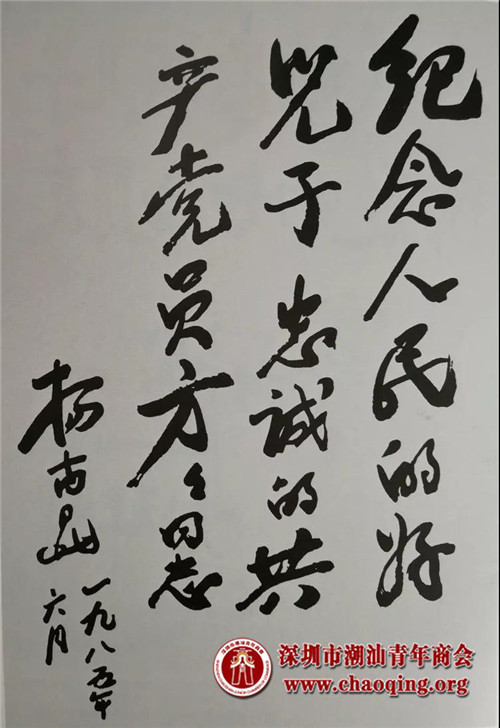 纪念人民的好
兒子忠诚的共
产党员方々同志
杨尚昆
一九八五年
六月
深圳市潮汕青年商会
www.chaoqing.org